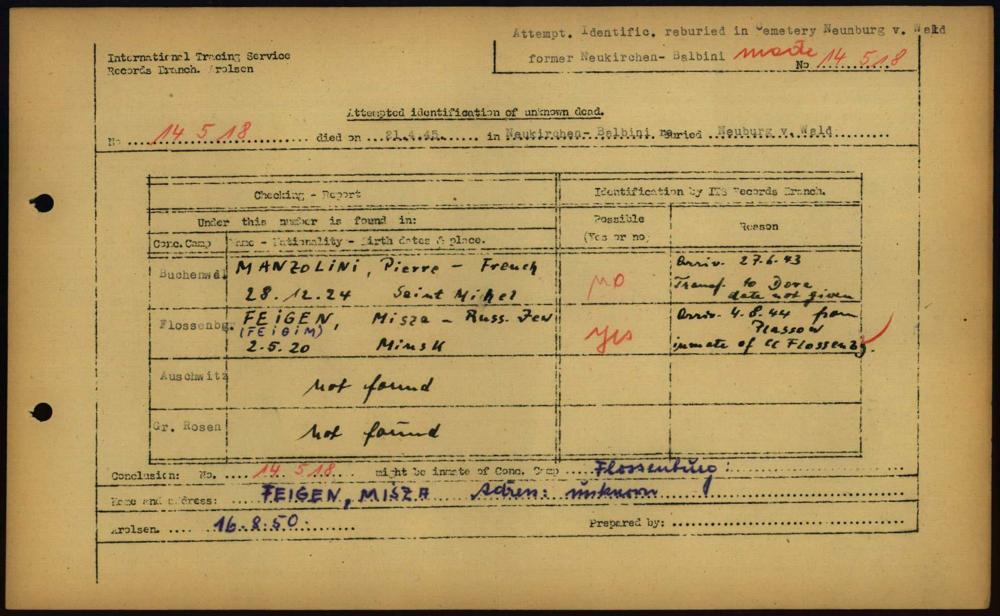 Attempt. Identific. reburied in Cemetery Neunburg v. Wald
former Neukirchen- Balbini made
No 14 518
International Tracing Service
Records Branch. Arolsen
Attempted identification of unknown dead.
No 14 5 18 died on 21.4.45 in Neukirchen- Balbini buried Neuburg v. Wald
Checking - Report Identification by ITS Records Branch.
Under this number is found in: Possible (Yes or no) Reason
Conc.Camp Name - Nationality - Birth dates & place.
Buchenwd. MANZOLINI, Pierre - French no Arriv. 27.6.43
28.12.24 Saint Mihel Transf. to Dora
date not given
Flossenbg. FEIGEN, Misza - Russ. Jew yes Arriv. 4.8.44 from
(FEIGIM) Plassow
2-5.20 Minsk inmate of CC Flossenbg.
Auschwitz not found
Gr. Rosen not found
Conclusion: No. 14.518 might be inmate of Conc. Camp Flossenburg:
Name and address: FEIGEN, MISZA Adress: unknown
Arolsen. 16.8.50. Prepared by: